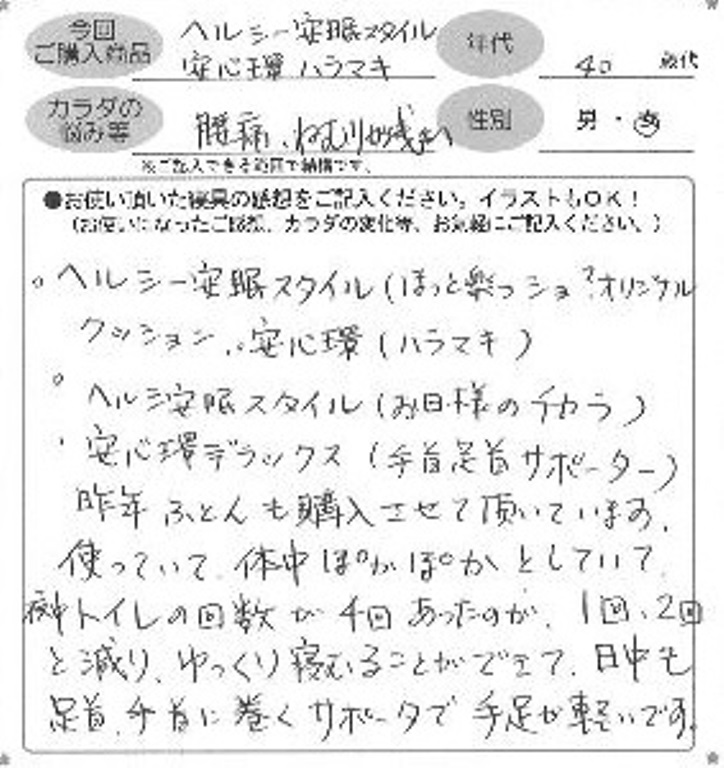 今回
ご購入商品
ヘルシー安眠スタイル
安心環 ハラマキ
年代
40 歳代
カラダの
悩み等
腰痛、ねむりが浅い
性別
男・女
※ご記入できる範囲で結構です。
●お使い頂いた寝具の感想をご記入ください。イラストもOK!
(お使いになったご感想、カラダの変化等、お気軽にご記入ください。)
。ヘルシー安眠スタイル(ほっと楽っショ?オリジナル
クッション。安心環(ハラマキ)
。ヘルシ安眠スタイル(お日様のチカラ)
・安心環デラックス(手首足首サポーター)
昨年ふとんも購入させて頂いています。
使っていて、体中ぽかぽかとしていて、
夜中トイレの回数が4回あったのが、1回、2回
と減り、ゆっくり寝むることができて、日中も
足首、手首に巻くサポータで手足が軽いです。